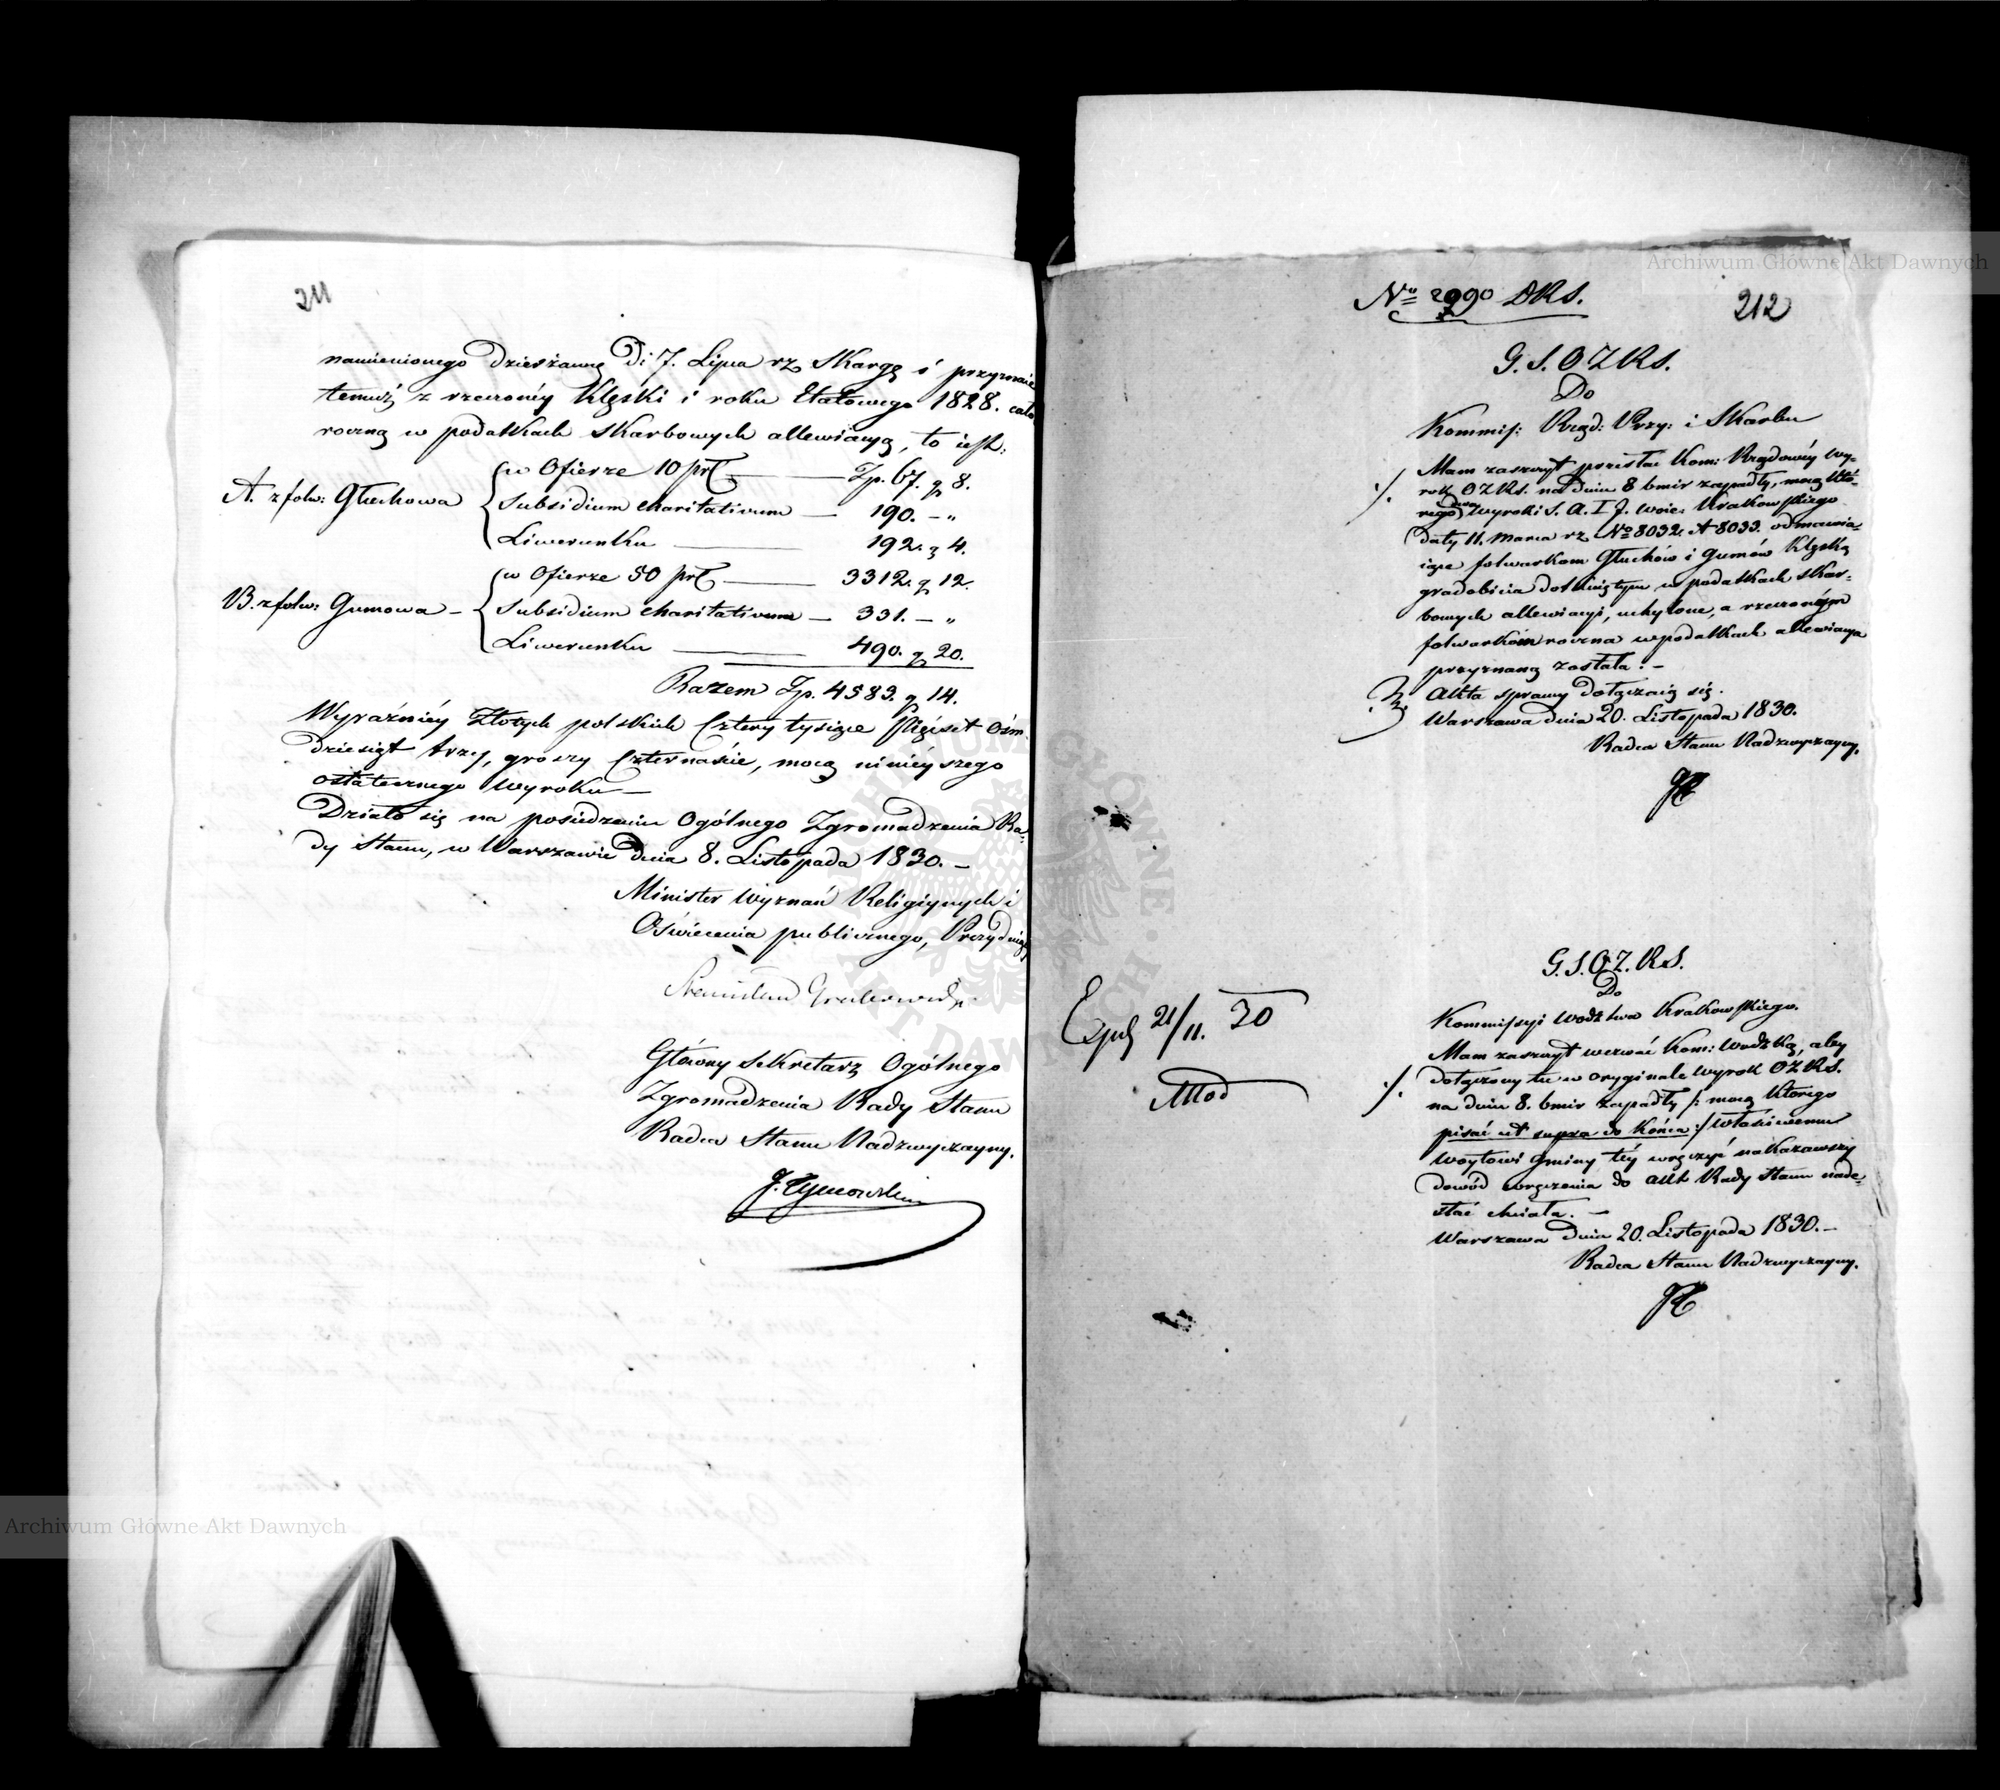 211
namienionego dzierżawcę d: 7. Lipca rz Skargę i przyznaie
temuż z rzeczonéy Klęski i roku Etatowego 1828. cało
roczną w podatkach Skarbowych allewiacyą, to iest:
A. z folw: Głuchowa
w Ofierze 10 prt Zp. 67. g 8.
Subsidium charitativum — 190. — „
Liwerunku — 192. g 4.
B. z folw: Gumowa —
w Ofierze 50 prt — 3312. g 12.
Subsidium charitativum — 331. — „
Liwerunku — 490. g 20.
Razem Zp. 4583. g 14.
Wyraźniéy Złotych polskich Cztery tysiące Pięćset Ośm-
dziesiąt trzy, groszy Czternaście, mocą ninieyszego
ostatecznego Wyroku —
Działo się na posiedzeniu Ogólnego Zgromadzenia Ra-
dy Stanu, w Warszawie dnia 8. Listopada 1830. —
Minister Wyznań Religiynych i
Oświecenia publicznego, Prezyduiący
Stanisław Grabowski
Główny Sekretarz Ogólnego
Zgromadzenia Rady Stanu
Radca Stanu Nadzwyczayny.
J. Tymowski
No 2990 DRS.
212
G. S. O. Z. R S.
Do
Kommis: Rząd: Przy: i Skarbu
Mam zaszczyt przesłać Kom: Rządowéy Wy-
rok OZRS. na dniu 8 bmir zapadły, mocą któ-
rego dwa wyroki S. A. I J. Woie: Krakowskiego
daty 11. Marca rz No 8032. A 8033. odmawia-
iące folwarkom Głuchów i Gumów Klęską
gradobicia dotkniętym, w podatkach skar-
bowych allewiacyi, uchylone, a rzeczonym
folwarkom roczna w podatkach allewiacya
przyznaną została: —
Akta sprawy dołączaią się.
Warszawa dnia 20. Listopada 1830.
Radca Stanu Nadzwyczayny.
G. S. O. Z. R S.
Do
Kommissyi Wodztwa Krakowskiego.
Mam zaszczyt wezwać Kom: Wodzką, aby
dołączony tu w oryginale Wyrok OZRS.
na dniu 8. bmir zapadły /: mocą którego
pisać ut supra do końca :/ właściwemu
Woytowi Gminy téy wręczyć nakazawszy
dowód wręczenia do Akt Rady Stanu nade-
słać chciała. —
Warszawa dnia 20. Listopada 1830. —
Radca Stanu Nadzwyczayny.
21/11. 30
Archiwum Główne Akt Dawnych
Archiwum Główne Akt Dawnych
ARCHIWUM GŁÓWNE AKT DAWNYCH